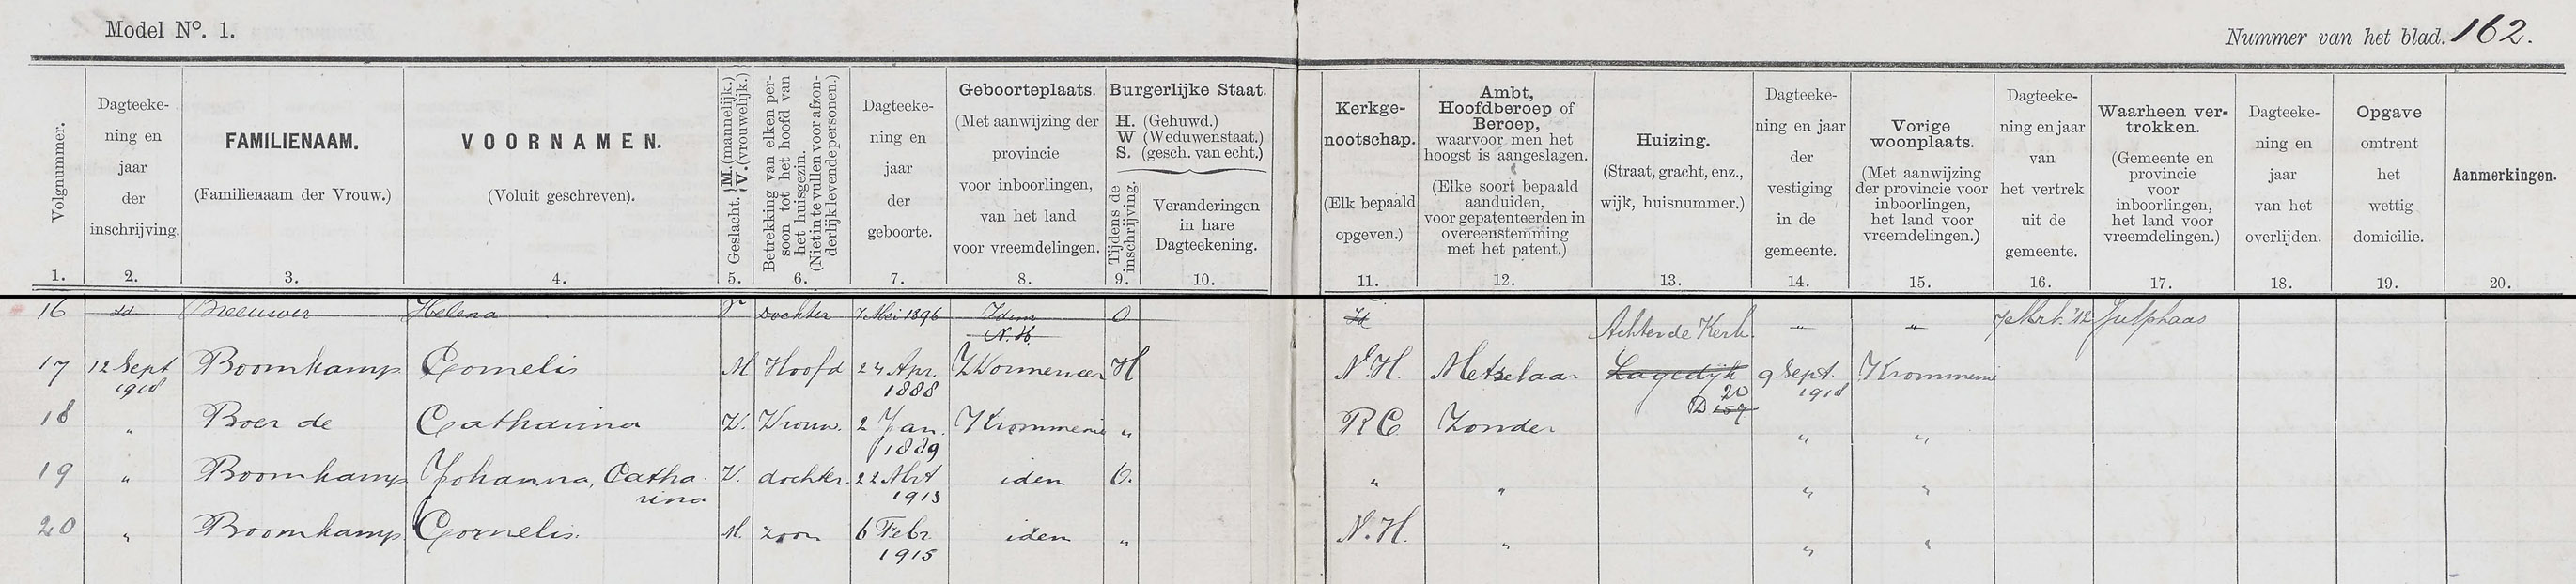 Model Nº. 1.
Nummer van het blad. 162.
Volgnummer.
1.
Dagteeke-
ning en
jaar
der
inschrijving.
2.
FAMILIENAAM.
(Familienaam der Vrouw.)
3.
VOORNAMEN.
(Voluit geschreven).
4.
Geslacht. {M. (mannelijk.)
V. (vrouwelijk.)
5.
Betrekking van elken per-
soon tot het hoofd van
het huisgezin.
(Niet in te vullen voor afzon-
derlijk levende personen.)
6.
Dagteeke-
ning en
jaar
der
geboorte.
7.
Geboorteplaats.
(Met aanwijzing der
provincie
voor inboorlingen,
van het land
voor vreemdelingen.
8.
Burgerlijke Staat.
H. (Gehuwd.)
W (Weduwenstaat.)
S. (gesch. van echt.)
Tijdens de
inschrijving.
9.
Veranderingen
in hare
Dagteekening.
10.
Kerkge-
nootschap.
(Elk bepaald
opgeven.)
11.
Ambt,
Hoofdberoep of
Beroep,
waarvoor men het
hoogst is aangeslagen.
(Elke soort bepaald
aanduiden,
voor gepatenteerden in
overeenstemming
met het patent.)
12.
Huizing.
(Straat, gracht, enz.,
wijk, huisnummer.)
13.
Dagteeke-
ning en jaar
der
vestiging
in de
gemeente.
14.
Vorige
woonplaats.
(Met aanwijzing
der provincie voor
inboorlingen,
het land voor
vreemdelingen.)
15.
Dagteeke-
ning en jaar
van
het vertrek
uit de
gemeente.
16.
Waarheen ver-
trokken.
(Gemeente en
provincie
voor
inboorlingen,
het land voor
vreemdelingen.)
17.
Dagteeke-
ning en
jaar
van het
overlijden.
18.
Opgave
omtrent
het
wettig
domicilie.
19.
Aanmerkingen.
20.
16 id Breeuwer Helena V Dochter 7 Mei 1896 Idem O Id Achter de Kerk. „ „ 7 Mrt. '12 Jutphaas
N. H.
17 12 Sept Boomkamp Cornelis M Hoofd 24 Apr. Wormerveer H N.H. Metselaar Lagedijk 9 Sept. Krommenie
1918 1888 20 1918
D 157
18 „ Boer de Catharina V. Vrouw. 2 Jan. Krommenie „ R C Zonder „ „
1889
19 „ Boomkamp Johanna, Catha- V. dochter. 22 Mrt idem O. „ „ „ „
rina 1913
20 „ Boomkamp Cornelis. M. zoon 6 Febr idem „ N. H. „ „ „
1915